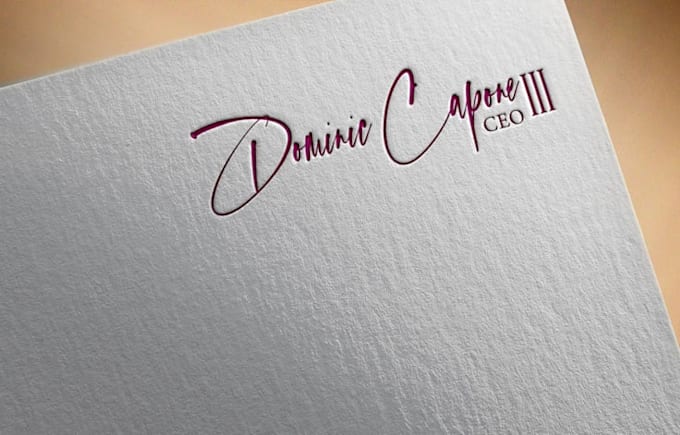 Dominic Capone III
CEO